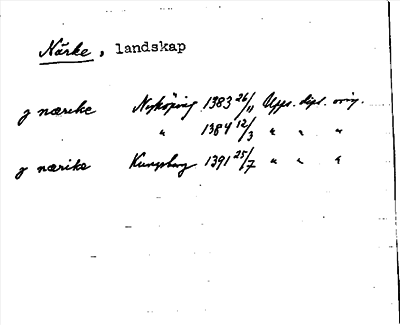 Närke, landskap
j nærike Nyköping 1383 26/11 Upps. dipl. orig.
" 1384 12/3 " " "
j nærike Kungsberg 1391 25/7 " " "